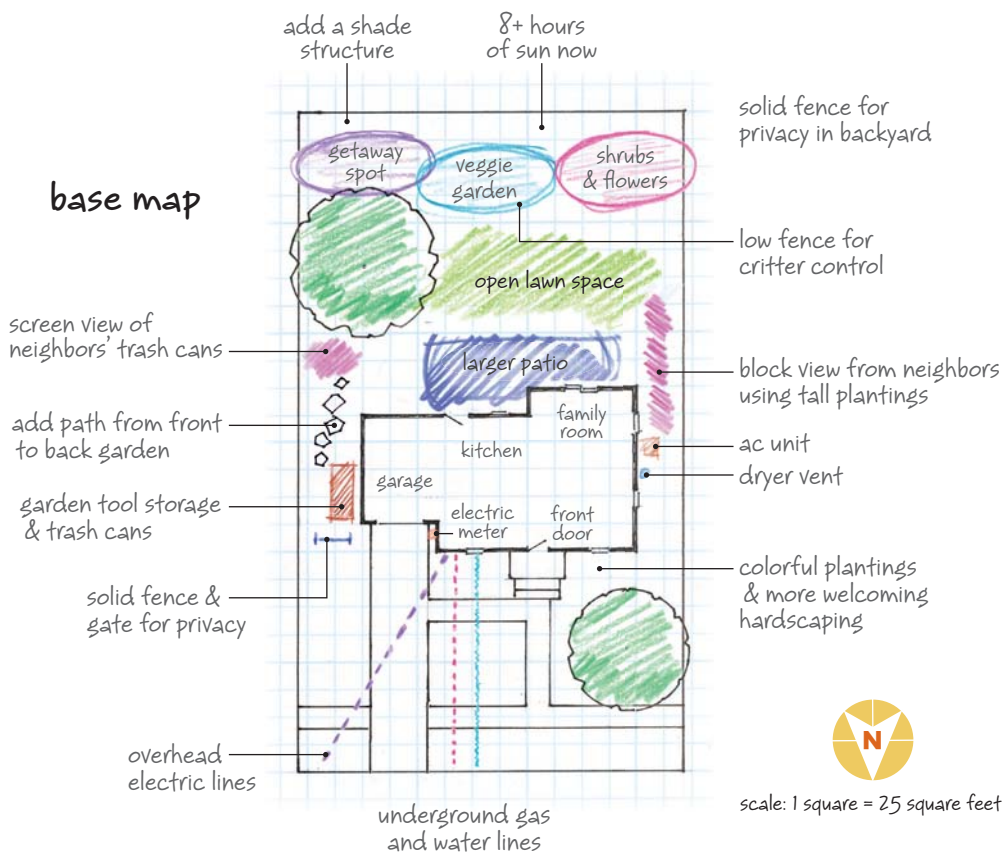 add a shade
structure
8+ hours
of sun now
solid fence for
privacy in backyard
getaway
spot
veggie
garden
shrubs
& flowers
base map
low fence for
critter control
open lawn space
screen view of
neighbors' trash cans
larger patio
block view from neighbors
using tall plantings
add path from front
to back garden
family
room
kitchen
ac unit
dryer vent
garage
garden tool storage
& trash cans
electric
meter
front
door
solid fence &
gate for privacy
colorful plantings
& more welcoming
hardscaping
overhead
electric lines
N
scale: 1 square = 25 square feet
underground gas
and water lines